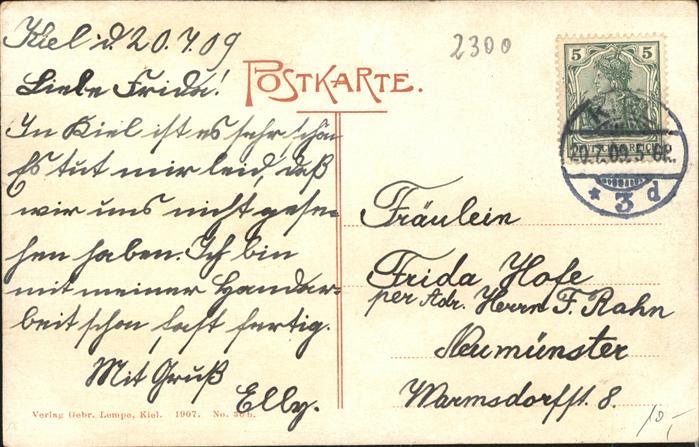 Kiel d. 20.7.09
2300
POSTKARTE.
Liebe Frida!
In Kiel ist es sehr schön
Es tut mir leid, daß
wir uns nicht gese-
hen haben. Ich bin
mit meiner Handar-
beit schon fast fertig.
Mit Gruß
Elly.
5 5
DEUTSCHES REICH
20.7.09.5-6N.
* 3 d
Fräulein
Frida Hofe
per Adr. Herrn F. Rahn
Neumünster
Warmsdorffst. 8.
Verlag Gebr. Lempe, Kiel. 1907. No. 36 b.
10,-